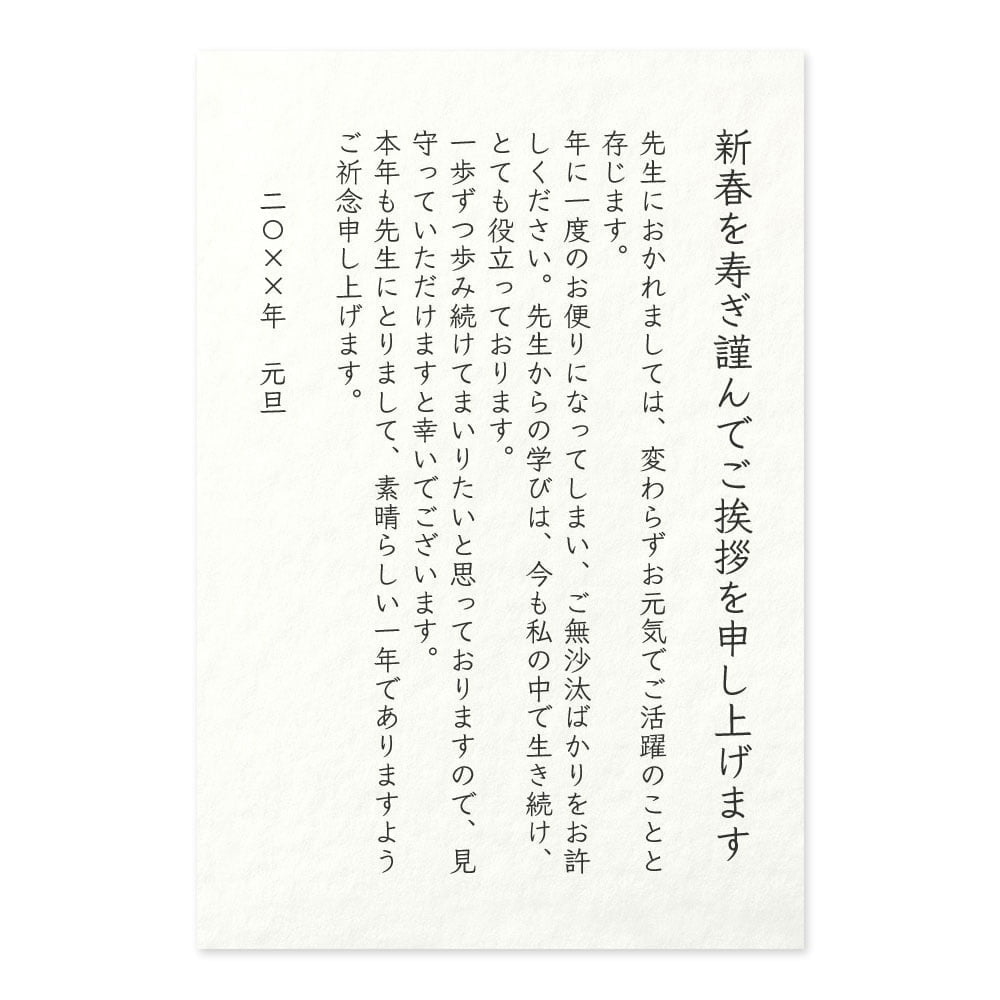 新春を寿ぎ謹んでご挨拶を申し上げます
先生におかれましては、変わらずお元気でご活躍のことと
存じます。
年に一度のお便りになってしまい、ご無沙汰ばかりをお許
しください。先生からの学びは、今も私の中で生き続け、
とても役立っております。
一歩ずつ歩み続けてまいりたいと思っておりますので、見
守っていただけますと幸いでございます。
本年も先生にとりまして、素晴らしい一年でありますよう
ご祈念申し上げます。
二〇××年　元旦